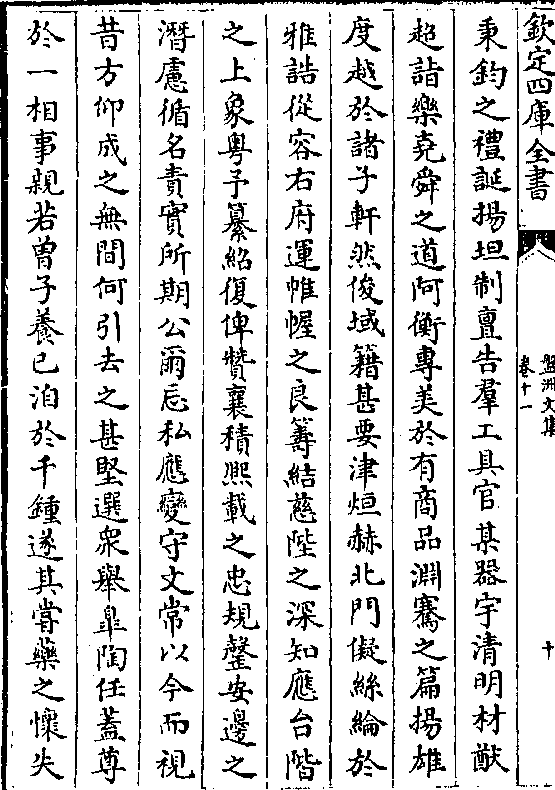 欽定四庫全書
盤洲文集
卷十一
十
秉鈞之禮誕揚坦制亶告羣工具官某器宇清明材猷
超詣樂堯舜之道阿衡專美於有商品淵騫之篇揚雄
度越於諸子軒然俊域籍甚要津烜赫北門儗絲綸於
雅誥從容右府運帷幄之良籌結慈陛之深知應台階
之上象粤予纂紹復俾贊襄積熙載之忠規罄安邊之
潛慮循名責實所期公爾忘私應變守文常以今而視
昔方仰成之無間何引去之甚堅選衆舉臯陶任蓋尊
於一相事親若曽子養已洎於千鍾遂其嘗藥之懷失